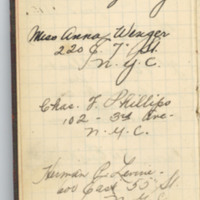 Miss Anna Wenger
220 E. 7" St.
N.Y.C.
Chas. F. Phillips
102 - 3rd Ave-
N.Y.C.
Herman
East 55 St